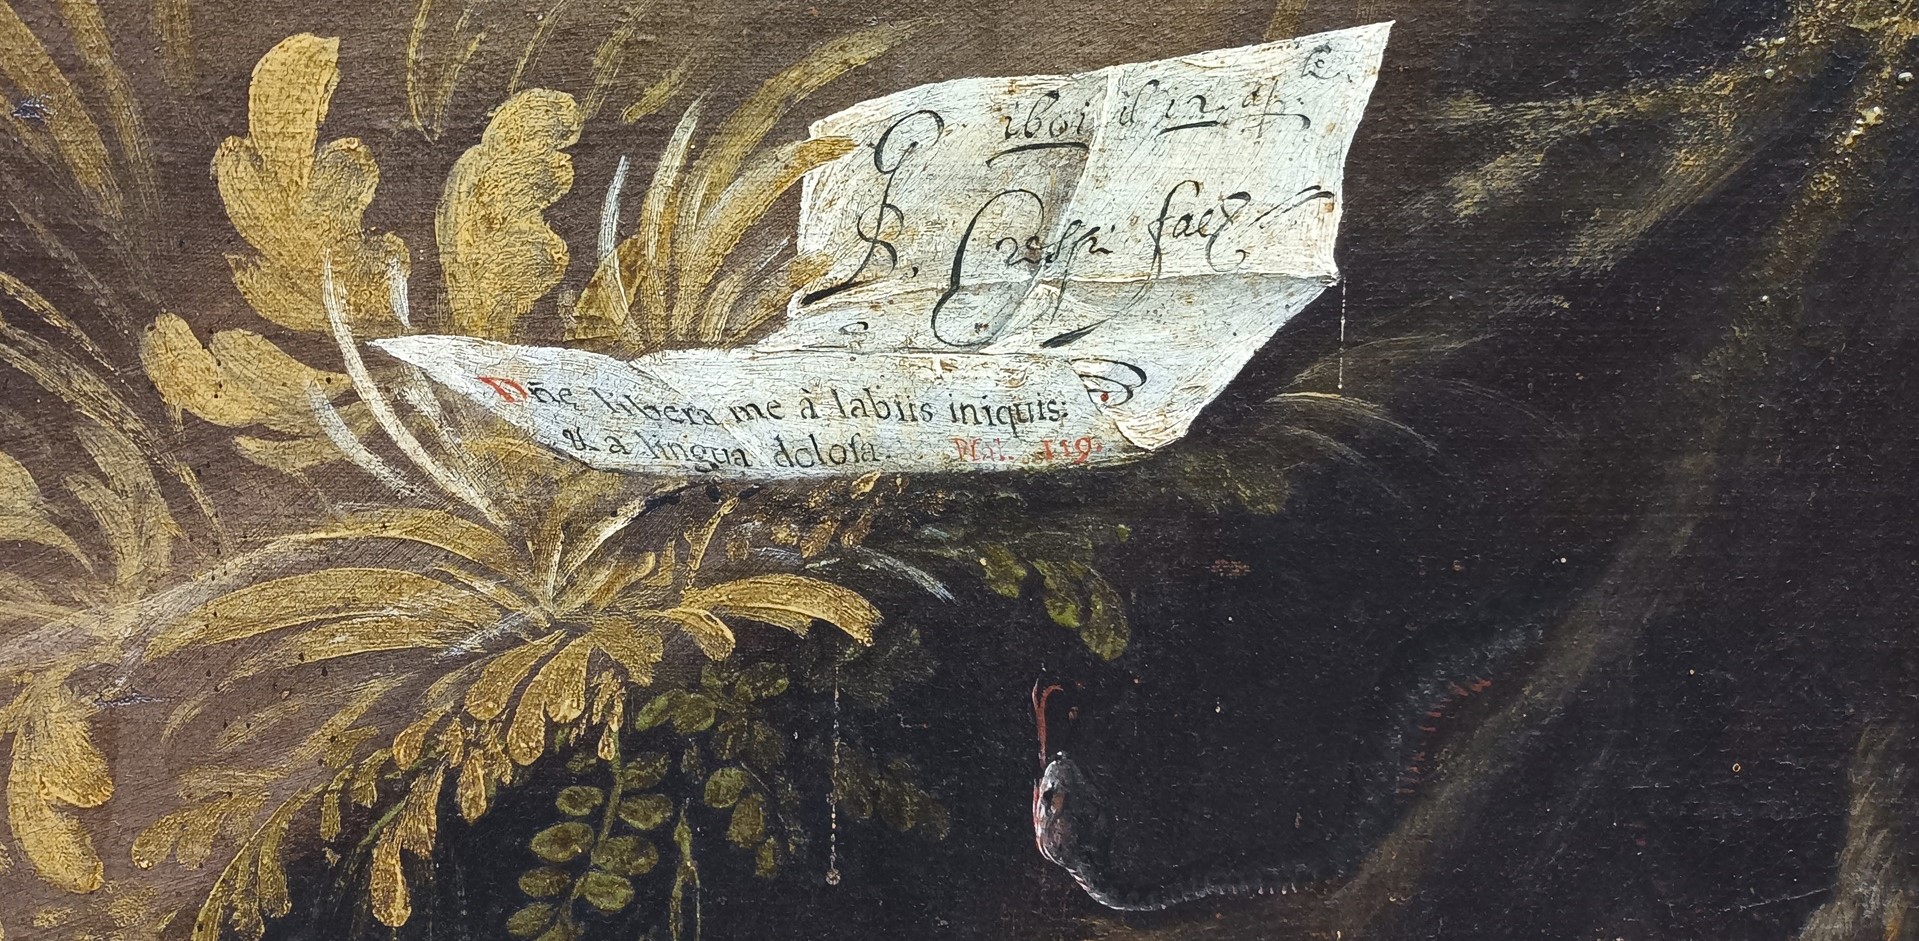 G 1601 il 12 ap.
B. Cressi faet
Dñe libera me à labiis iniquis:
& a lingua dolosa. Psal. 119.